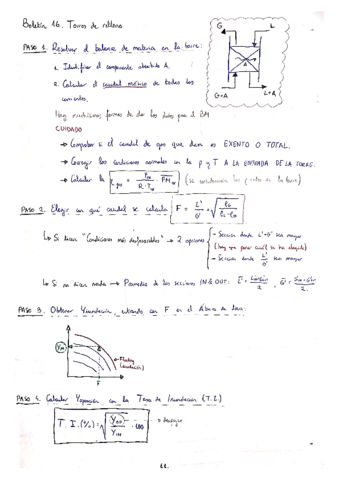 Boletín 16. Torres de relleno
G
L
A
G+A
L+A
PASO 1. Resolver el balance de materia en la torre:
1. Identificar el componente absorbido A.
2. Calcular el caudal másico de todas las corrientes.
Hay muchísimas formas de dar los datos para el BM
CUIDADO
→ Comprobar si el caudal de gas que dan es EXENTO O TOTAL.
→ Corregir las condiciones normales con la p y T A LA ENTRADA DE LA TORRE.
→ Calcular la
PASO 2. Elegir en qué caudal se calcula F = L'/G' √
↳ Si dicen "Condiciones más desfavorables" → 2 opciones
- Sección donde L'+G' sea mayor
(hay que poner cuál se ha elegido)
- Sección donde L'/G' sea mayor
↳ Si no dicen nada → Promedio de las secciones IN & OUT:
PASO 3. Obtener Yinundación, entrando con F en el Ábaco de Lobo:
Flooding
(inundación)
F
PASO 4. Calcular Yoperación con la Tasa de Inundación (T.I.)
T.I.(%) = √ · 100
→ despejar